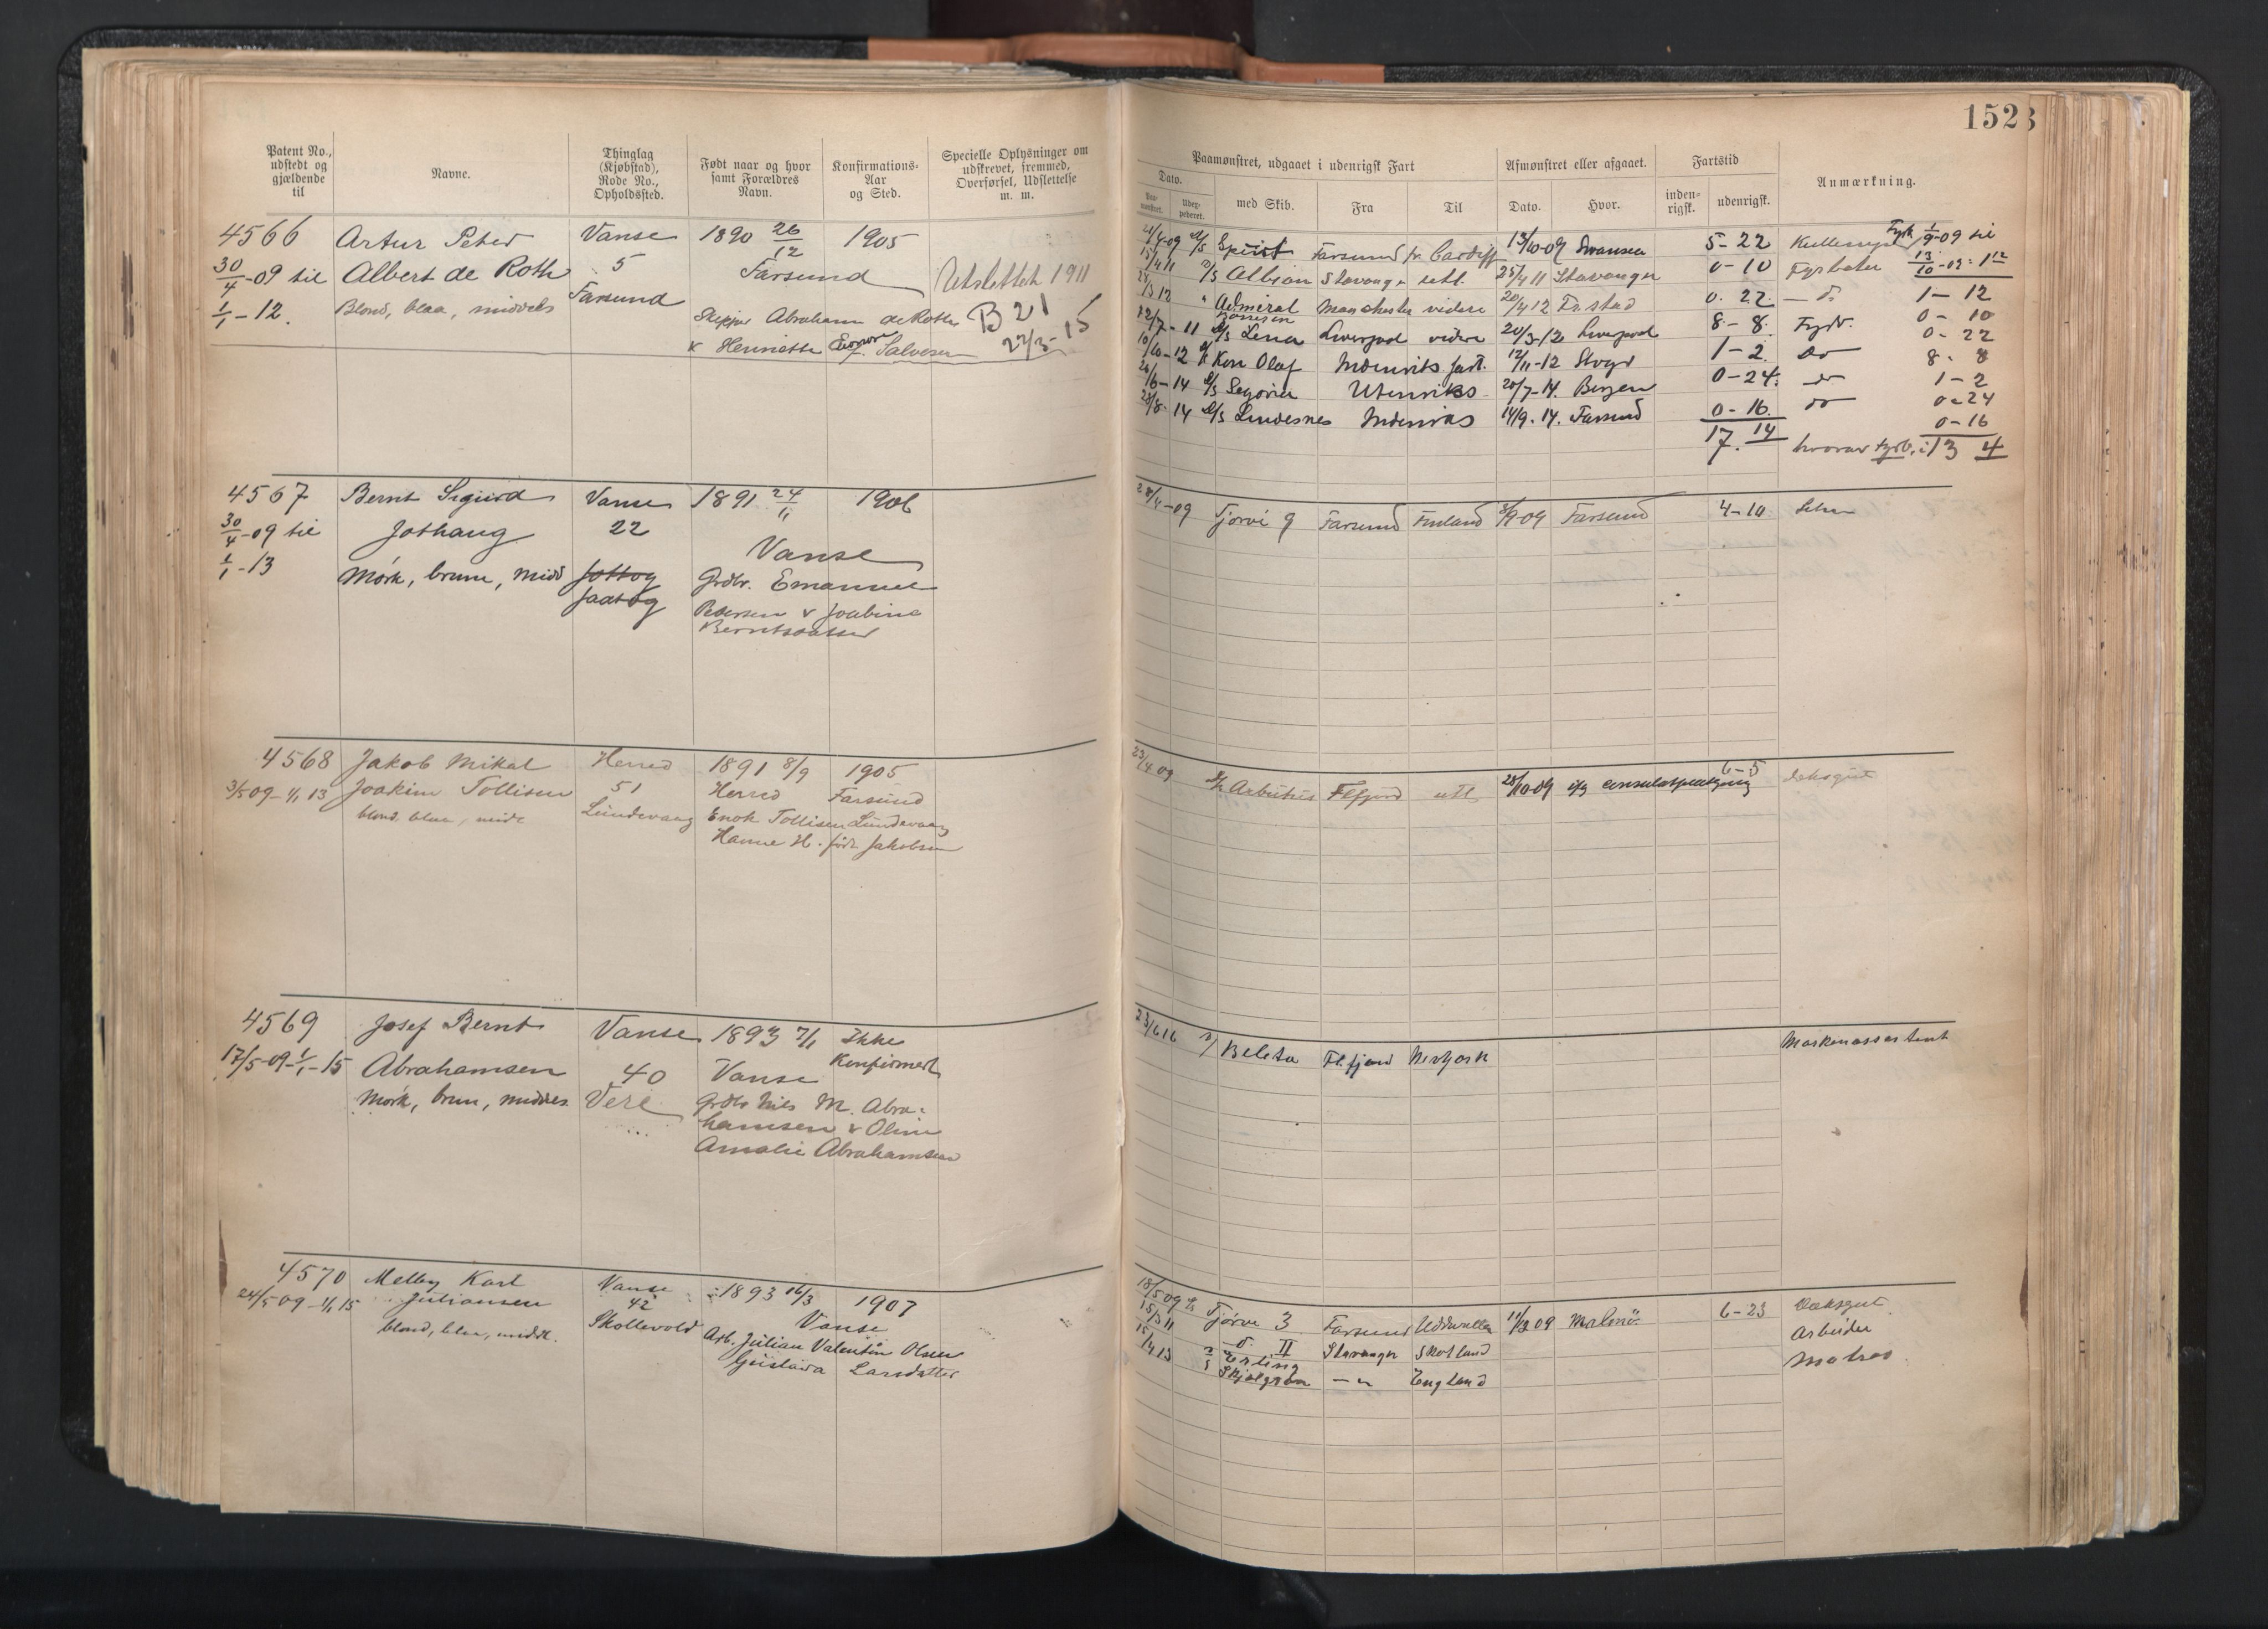 1523
Patent No., udstedt og gjældende til
Navne.
Thinglag (Kjøbstad), Rode No., Opholdssted.
Født naar og hvor samt Forældres Navn.
Konfirmations-Aar og Sted.
Specielle Oplysninger om udskrevet, fremmed, Overførsel, Udslettelse m. m.
4566 Artur Peter Vanse 1890 26/12 1905
30/4-09 til Albert de Roth 5 Farsund Utslettet 1911
1/1-12. Blond, blaa, middels Farsund
Skipper Abraham de Roth B 21
& Henriette f. Salvesen 27/3-15
4567 Bernt Sigurd Vanse 1891 24/11 1906
30/4-09 til Jothaug 22 Vanse
1/1-13 Mørk, brune, midd Jottog Grdbr. Emanuel
Jaatog Pedersen & Joabine
Berntsdatter
4568 Jakob Mikal Herred 1891 8/9 1905
3/5 09-1/1 13 Joakim Tollisen 51 Herred Farsund
blond, blaa, midd Lundevaag Enok Tollisen Lundevaag
Hanne H. født Jakobsen
4569 Josef Bernt Vanse 1893 7/1 Ikke
17/5-09-1/1-15 Abrahamsen 40 Vanse Konfirmert
Mørk, brun, middels Vere Grdbr Nils M. Abra-
hamsen & Oline
Amalie Abrahamsen
4570 Melby Karl Vanse 1893 16/3 1907
24/5 09-1/1 15 Juliansen 42 Vanse
blond, blaa, middl. Skollevold Arb. Julian Valentin Olsen
Gustava Larsdatter
Paamønstret, udgaaet i udenrigsk Fart
Afmønstret eller afgaaet.
Fartstid
Anmærkning.
Dato.
Paamønstret. Udexpederet. med Skib. Fra Til Dato. Hvor. indenrigsk. udenrigsk.
4/4-09 D/S Spirit Farsund fr. Cardiff 13/10-09 Swansea 5-22 Fyrb 1/9-09 til
15/4 11 D/S Albion Stavanger utl. 25/4 11 Stavanger 0-10 Fyrbøter 13/10-09: 1 12
28/3 12 " Admiral Børresen Manchester videre 20/4 12 Fr.stad 0. 22. — d. 1-12
12/7-11 D/S Lena Liverpool videre 20/3-12 Liverpool 8-8. Fyrb. 0-10
10/10-12 Kon Olaf Indenriks fart. 12/11-12 1-2. Do 0-22
26/6-14 D/S Segovia Utenriks 20/7-14. Bergen 0-24. do 8-8
28/8-14 D/S Lindesnes Indenriks 14/9.14. Farsund 0-16. do 1-2
0-24
0-16
17. 14 hvorav fyrb. : 13 4
28/4-09 Tjorvi 9 Farsund Finland 8/9-09 Farsund 4-10
23/4 09 Arbutus Flfjord utl 28/10-09 6-5 Deksgut
23/6 16 Beleta Fl.fjord Neryork Maskinassistent
18/5 09 Tjørve 3 Farsund Uddevalla 11/12 09 Malmö 6-23 Dæksgut
15/3 11 d. II Stavanger Skotland Arbeider
15/4 13 Erling Skjalgson — " England Matros